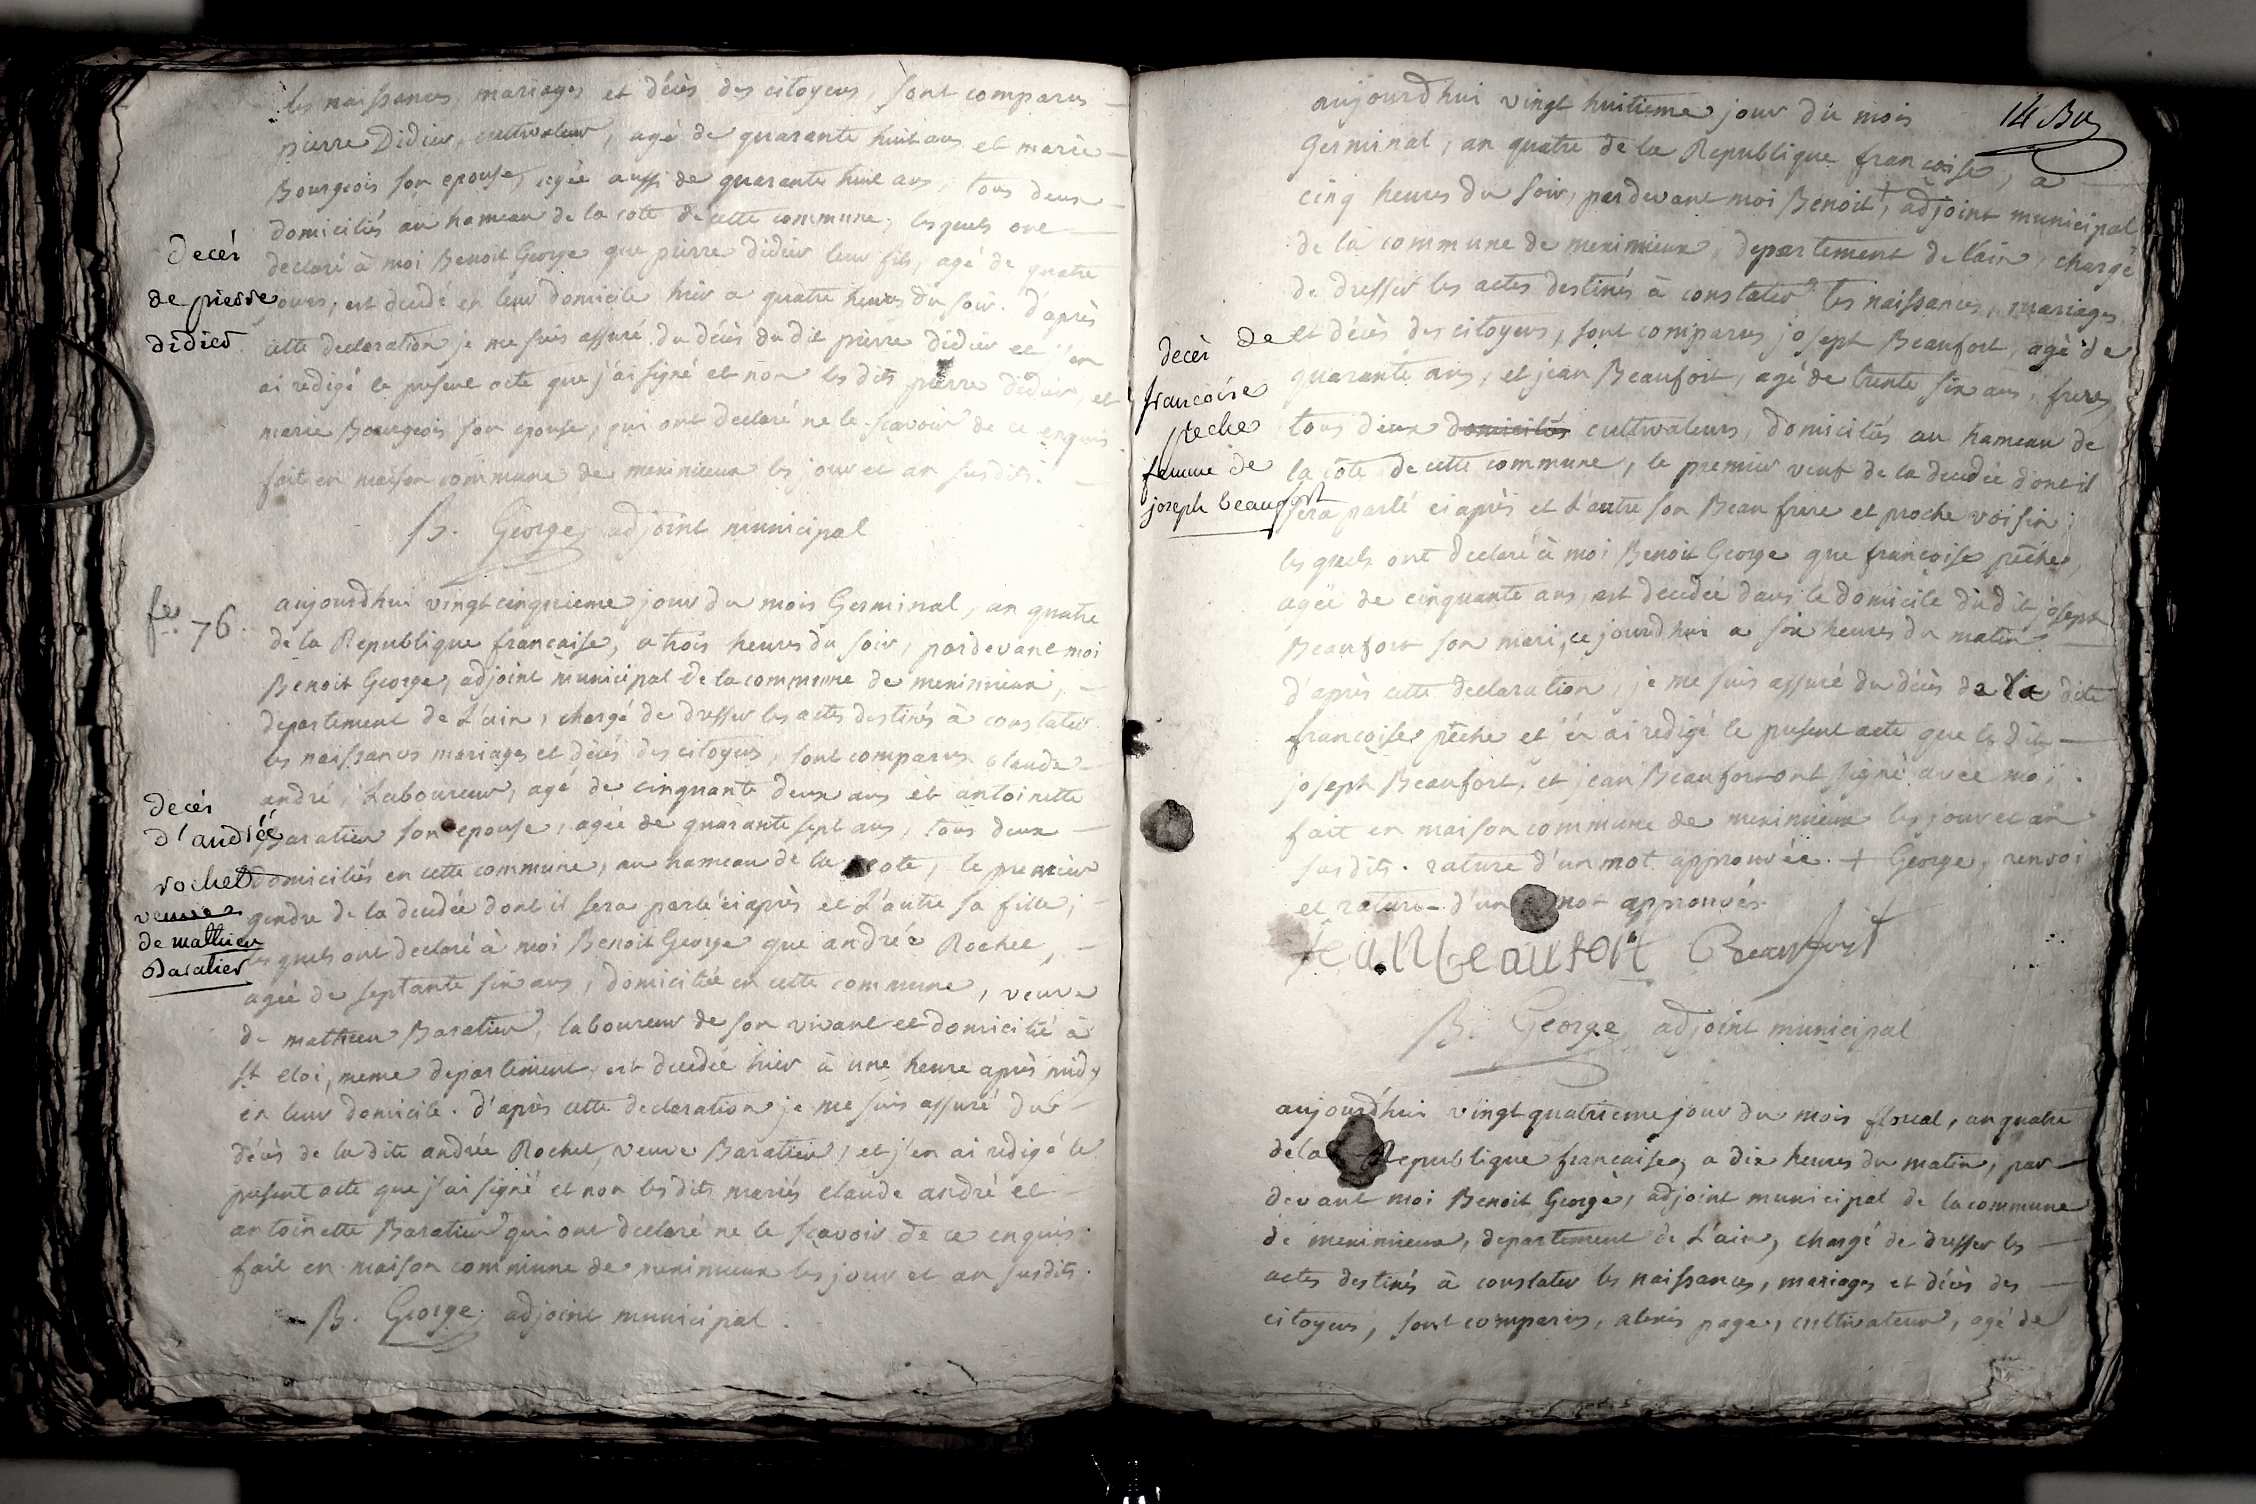 les naissances, mariages et décès des citoyens, sont comparus
pierre Didier, cultivateur, agé de quarante huit ans et marie
Bourgeois son epouse, agée aussi de quarante huit ans, tous deux
domiciliés au hameau de la cote de cette commune, lesquels ont
declaré à moi Benoit George que pierre didier leur fils, agé de quatre
jours, est decedé en leur domicile hier a quatre heures du soir. d'après
cette declaration je me suis assuré du décès du dit pierre didier et j'en
ai redigé le present acte que j'ai signé et non les dits pierre didier, et
marie Bourgeois son epouse, qui ont declaré ne le sçavoir de ce enquis
fait en maison commune de meximieux les jour et an susdits.
B. George, adjoint municipal
decés
de pierre
didier
fo. 76.
aujourdhui vingt cinquieme jour du mois Germinal, an quatre
de la Republique francaise, a trois heures du soir, pardevant moi
Benoit George, adjoint municipal de la commune de meximieux,
departement de L'ain, chargé de dresser les actes destinés à constater
les naissances mariages et décés des citoyens, sont comparus claude
andré, Laboureur, agé de cinquante deux ans et antoinette
Baratier son epouse, agée de quarante sept ans, tous deux
domiciliés en cette commune, au hameau de la cote, le premier
gendre de la decedée dont il sera parlé ci après et L'autre sa fille,
les quels ont declaré à moi Benoit George que andrée Rochet,
agée de septante six ans, domiciliée en cette commune, veuve
de mathieu Baratier, laboureur de son vivant et domicilié à
st eloi, meme departement, est decedée hier à une heure après midy
en leur domicile. d'après cette declaration je me suis assuré du
décès de la dite andrée Rochet, veuve Baratier, et j'en ai redigé le
present acte que j'ai signé et non les dits mariés claude andré et
antoinette Baratier qui ont declaré ne le sçavoir de ce enquis.
fait en maison commune de meximieux les jour et an susdits.
B. George, adjoint municipal.
decés
d'andrée
rochet
veuve
de mathieu
Baratier
14
aujourdhui vingt huitieme jour du mois
Germinal, an quatre de la Republique francoise, a
cinq heures du soir, pardevant moi Benoit +, adjoint municipal
de la commune de meximieux, departement de l'ain, chargé
de dresser les actes destinés à constater les naissances, mariages
et décès des citoyens, sont comparus joseph Beaufort, agé de
quarante ans, et jean Beaufort, agé de trente six ans, freres,
tous deux domiciliés cultivateurs, domiciliés au hameau de
la côte de cette commune, le premier veuf de la decedée dont il
sera parlé ci après et L'autre son Beau frere et proche voisin;
les quels ont declaré à moi Benoit George que francoise pêche,
agée de cinquante ans, est decedée dans le domicile du dit joseph
Beaufort son mari, ce jourdhui a six heures du matin.
d'après cette declaration, je me suis assuré du décès de la dite
francoise pêche et j'en ai redigé le present acte que les dits
joseph Beaufort, et jean Beaufort ont signé avec moi.
fait en maison commune de meximieux les jour et an
susdits. rature d'un mot approuvée. + George, renvoi
et rature d'un mot approuvés
jean beaufort Beaufort
B. George, adjoint municipal
decés de
francoise
peche
femme de
joseph beaufort
aujourd'hui vingt quatrieme jour du mois floreal, an quatre
de la Republique francaise, a dix heures du matin, par
devant moi Benoit George, adjoint municipal de la commune
de meximieux, departement de L'ain, chargé de dresser les
actes destinés à constater les naissances, mariages et décès des
citoyens, sont comparus, alexis page, cultivateur, agé de